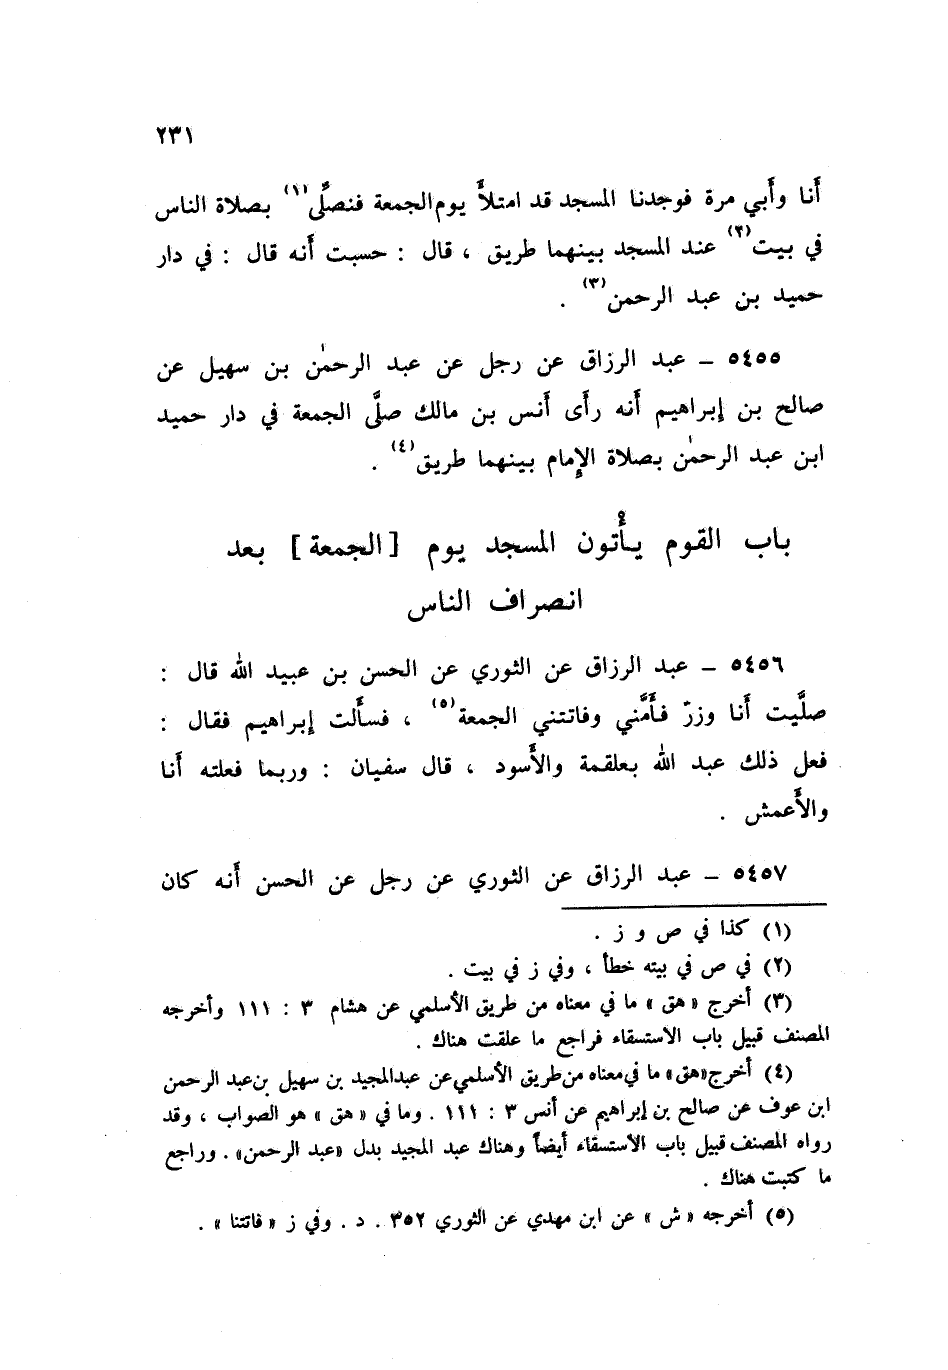 ٢٣١
أَنا وأَبي مرة فوجدنا المسجد قد امتلأَ يوم الجمعة فنصلِّي(١) بصلاة الناس
في بيت(٢) عند المسجد بينهما طريق ، قال : حسبت أَنه قال : في دار
حميد بن عبد الرحمن(٣) .
٥٤٥٥ – عبد الرزاق عن رجل عن عبد الرحمٰن بن سهيل عن
صالح بن إبراهيم أَنه رأَى أَنس بن مالك صلَّى الجمعة في دار حميد
ابن عبد الرحمٰن بصلاة الإِمام بينهما طريق(٤) .
باب القوم يأْتون المسجد يوم [الجمعة] بعد
انصراف الناس
٥٤٥٦ – عبد الرزاق عن الثوري عن الحسن بن عبيد الله قال :
صلَّيت أَنا وزرّ فأَمَّني وفاتتني الجمعة(٥) ، فسأَلت إبراهيم فقال :
فعل ذلك عبد الله بعلقمة والأَسود ، قال سفيان : وربما فعلته أَنا
والأَعمش .
٥٤٥٧ – عبد الرزاق عن الثوري عن رجل عن الحسن أَنه كان
(١) كذا في ص و ز .
(٢) في ص في بيته خطأ ، وفي ز في بيت .
(٣) أخرج « هق » ما في معناه من طريق الأسلمي عن هشام ٣ : ١١١ وأخرجه
المصنف قبيل باب الاستسقاء فراجع ما علقت هناك .
(٤) أخرج «هق» ما في معناه من طريق الأسلمي عن عبدالمجيد بن سهيل بن عبد الرحمن
ابن عوف عن صالح بن إبراهيم عن أنس ٣ : ١١١ . وما في « هق » هو الصواب ، وقد
رواه المصنف قبيل باب الاستسقاء أيضاً وهناك عبد المجيد بدل «عبد الرحمن» . وراجع
ما كتبت هناك .
(٥) أخرجه « ش » عن ابن مهدي عن الثوري ٣٥٢ . د . وفي ز « فاتتنا » .